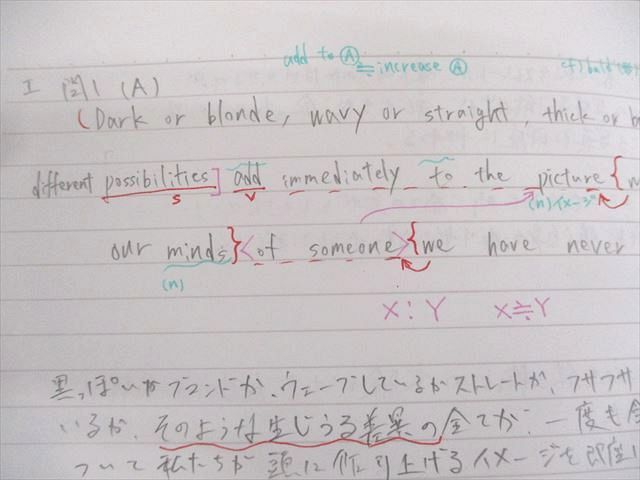 add to Ⓐ
≒ increase Ⓐ
I 問1 (A)
(Dark or blonde, wavy or straight, thick or
different possibilities] add immediately to the picture {
S V (n) イメージ
our minds} <of someone> {we have never
(n)
X : Y X≒Y
黒っぽいかブロンドか、ウェーブしているかストレートか、フサフサ
いるか、そのような生じうる差異の全てが、一度も会
ついて私たちが頭に作り上げるイメージを即座に